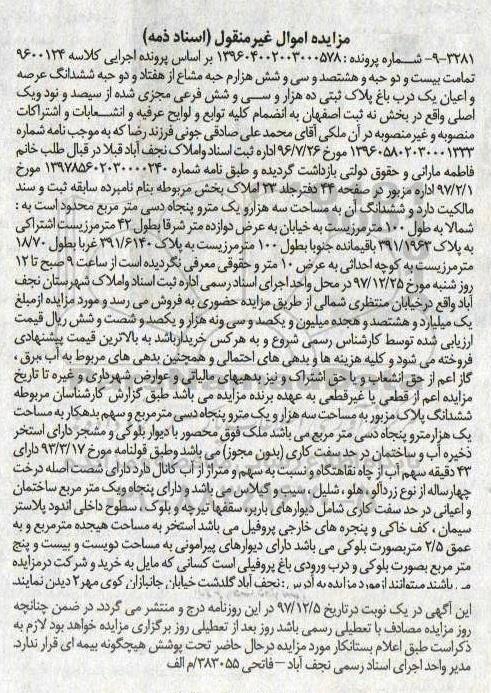 مزایده اموال غیرمنقول (اسناد ذمه)
۹-۳۲۸۱- شماره پرونده : ۱۳۹۶۰۴۰۰۲۰۰۳۰۰۰۵۷۸ بر اساس پرونده اجرایی کلاسه ۹۶۰۰۱۲۴
تمامت بیست و دو حبه و هشتصد و سی و شش هزارم حبه مشاع از هفتاد و دو حبه ششدانگ عرصه
و اعیان یک درب باغ پلاک ثبتی ده هزار و سی و شش فرعی مجزی شده از سیصد و نود ویک
اصلی واقع در بخش نه ثبت اصفهان به انضمام کلیه توابع و لوایح عرفیه و انشعابات و اشتراکات
منصوبه و غیرمنصوبه در آن ملکی آقای محمد علی صادقی جونی فرزند رضا که به موجب نامه شماره
۱۳۹۶۰۵۸۰۲۰۳۰۰۰۱۳۳۳ مورخ ۹۶/۷/۲۶ اداره ثبت اسناد واملاک نجف آباد قبلا در قبال طلب خانم
فاطمه مارانی و حقوق دولتی بازداشت گردیده و طبق نامه شماره ۱۳۹۷۸۵۶۰۲۰۳۰۰۰۰۲۴۰ مورخ
۹۷/۲/۱ اداره مزبور در صفحه ۴۴ دفترجلد ۲۳ املاک بخش مربوطه بنام نامبرده سابقه ثبت و سند
مالکیت دارد و ششدانگ آن به مساحت سه هزارو یک مترو پنجاه دسی متر مربع محدود است به :
شمالا به طول ۱۰۰ مترمرزیست به خیابان به عرض دوازده متر شرقا بطول ۴۲ مترمرزیست اشتراکی
به پلاک ۳۹۱/۱۹۶۳ باقیمانده جنوبا بطول ۱۰۰ مترمرزیست به پلاک ۳۹۱/۶۱۴۰ غربا بطول ۱۸/۷۰
مترمرزیست به کوچه احداثی به عرض ۱۰ متر و حقوقی معرفی نگردیده است از ساعت ۹ صبح تا ۱۲
روز شنبه مورخ ۹۷/۱۲/۲۵ در محل واحد اجرای اسناد رسمی اداره ثبت اسناد واملاک شهرستان نجف
آباد واقع درخیابان منتظری شمالی از طریق مزایده حضوری به فروش می رسد و مورد مزایده ازمبلغ
یک میلیارد و هشتصد و هجده میلیون و یکصد و سی ونه هزار و یکصد و شصت و شش ریال قیمت
ارزیابی شده توسط کارشناس رسمی شروع و به هرکس خریدارباشد به بالاترین قیمت پیشنهادی
فروخته می شود و کلیه هزینه ها و بدهی های احتمالی و همچنین بدهی های مربوط به آب ،برق ،
گاز اعم از حق انشعاب و یا حق اشتراک و نیز بدهیهای مالیاتی و عوارض شهرداری و غیره تا تاریخ
مزایده اعم از قطعی یا غیرقطعی به عهده برنده مزایده می باشد طبق گزارش کارشناسان مربوطه
ششدانگ پلاک مزبور به مساحت سه هزار و یک مترو پنجاه دسی مترمربع و سهم بدهکار به مساحت
یک هزارمترو پنجاه دسی متر مربع می باشد ملک فوق محصور با دیوار بلوکی و مشجر دارای استخر
ذخیره آب و ساختمان در حد سفت کاری (بدون مجوز) می باشد وطبق قولنامه مورخ ۹۳/۳/۱۷ دارای
۴۳ دقیقه سهم آب از چاه نقاهتگاه و نسبت به سهم و متراژ از آب کانال دارد دارای شصت اصله درخت
چهارساله از نوع زردآلو ، هلو ، شلیل ، سیب و گیلاس می باشد و دارای پنجاه ویک متر مربع ساختمان
و اعیانی در حد سفت کاری شامل دیوارهای باربر، سقفها تیرچه و بلوک ، سطوح داخلی اندود پلاستر
سیمان ، کف خاکی و پنجره های خارجی پروفیل می باشد استخر به مساحت هیجده مترمربع و به
عمق ۲/۵ متربصورت بلوکی می باشد دارای دیوارهای پیرامونی به مساحت دویست و بیست و پنج
متر مربع بصورت بلوکی و درب ورودی باغ پروفیلی است کسانی که مایل به خرید و شرکت درمزایده
می باشند میتوانند ازمورد مزایده به آدرس : نجف آباد گلدشت خیابان جانبازان کوی مهر۲ دیدن نمایند
این آگهی در یک نوبت درتاریخ ۹۷/۱۲/۵ در این روزنامه درج و منتشر می گردد. در ضمن چنانچه
روز مزایده مصادف با تعطیلی رسمی باشد روز بعد از تعطیلی روز برگزاری مزایده خواهد بود لازم به
ذکراست طبق اعلام بستانکار مورد مزایده درحال حاضر تحت پوشش هیچگونه بیمه ای قرار ندارد.
مدیر واحد اجرای اسناد رسمی نجف آباد – فاتحی ۳۸۳۰۵۵/م الف